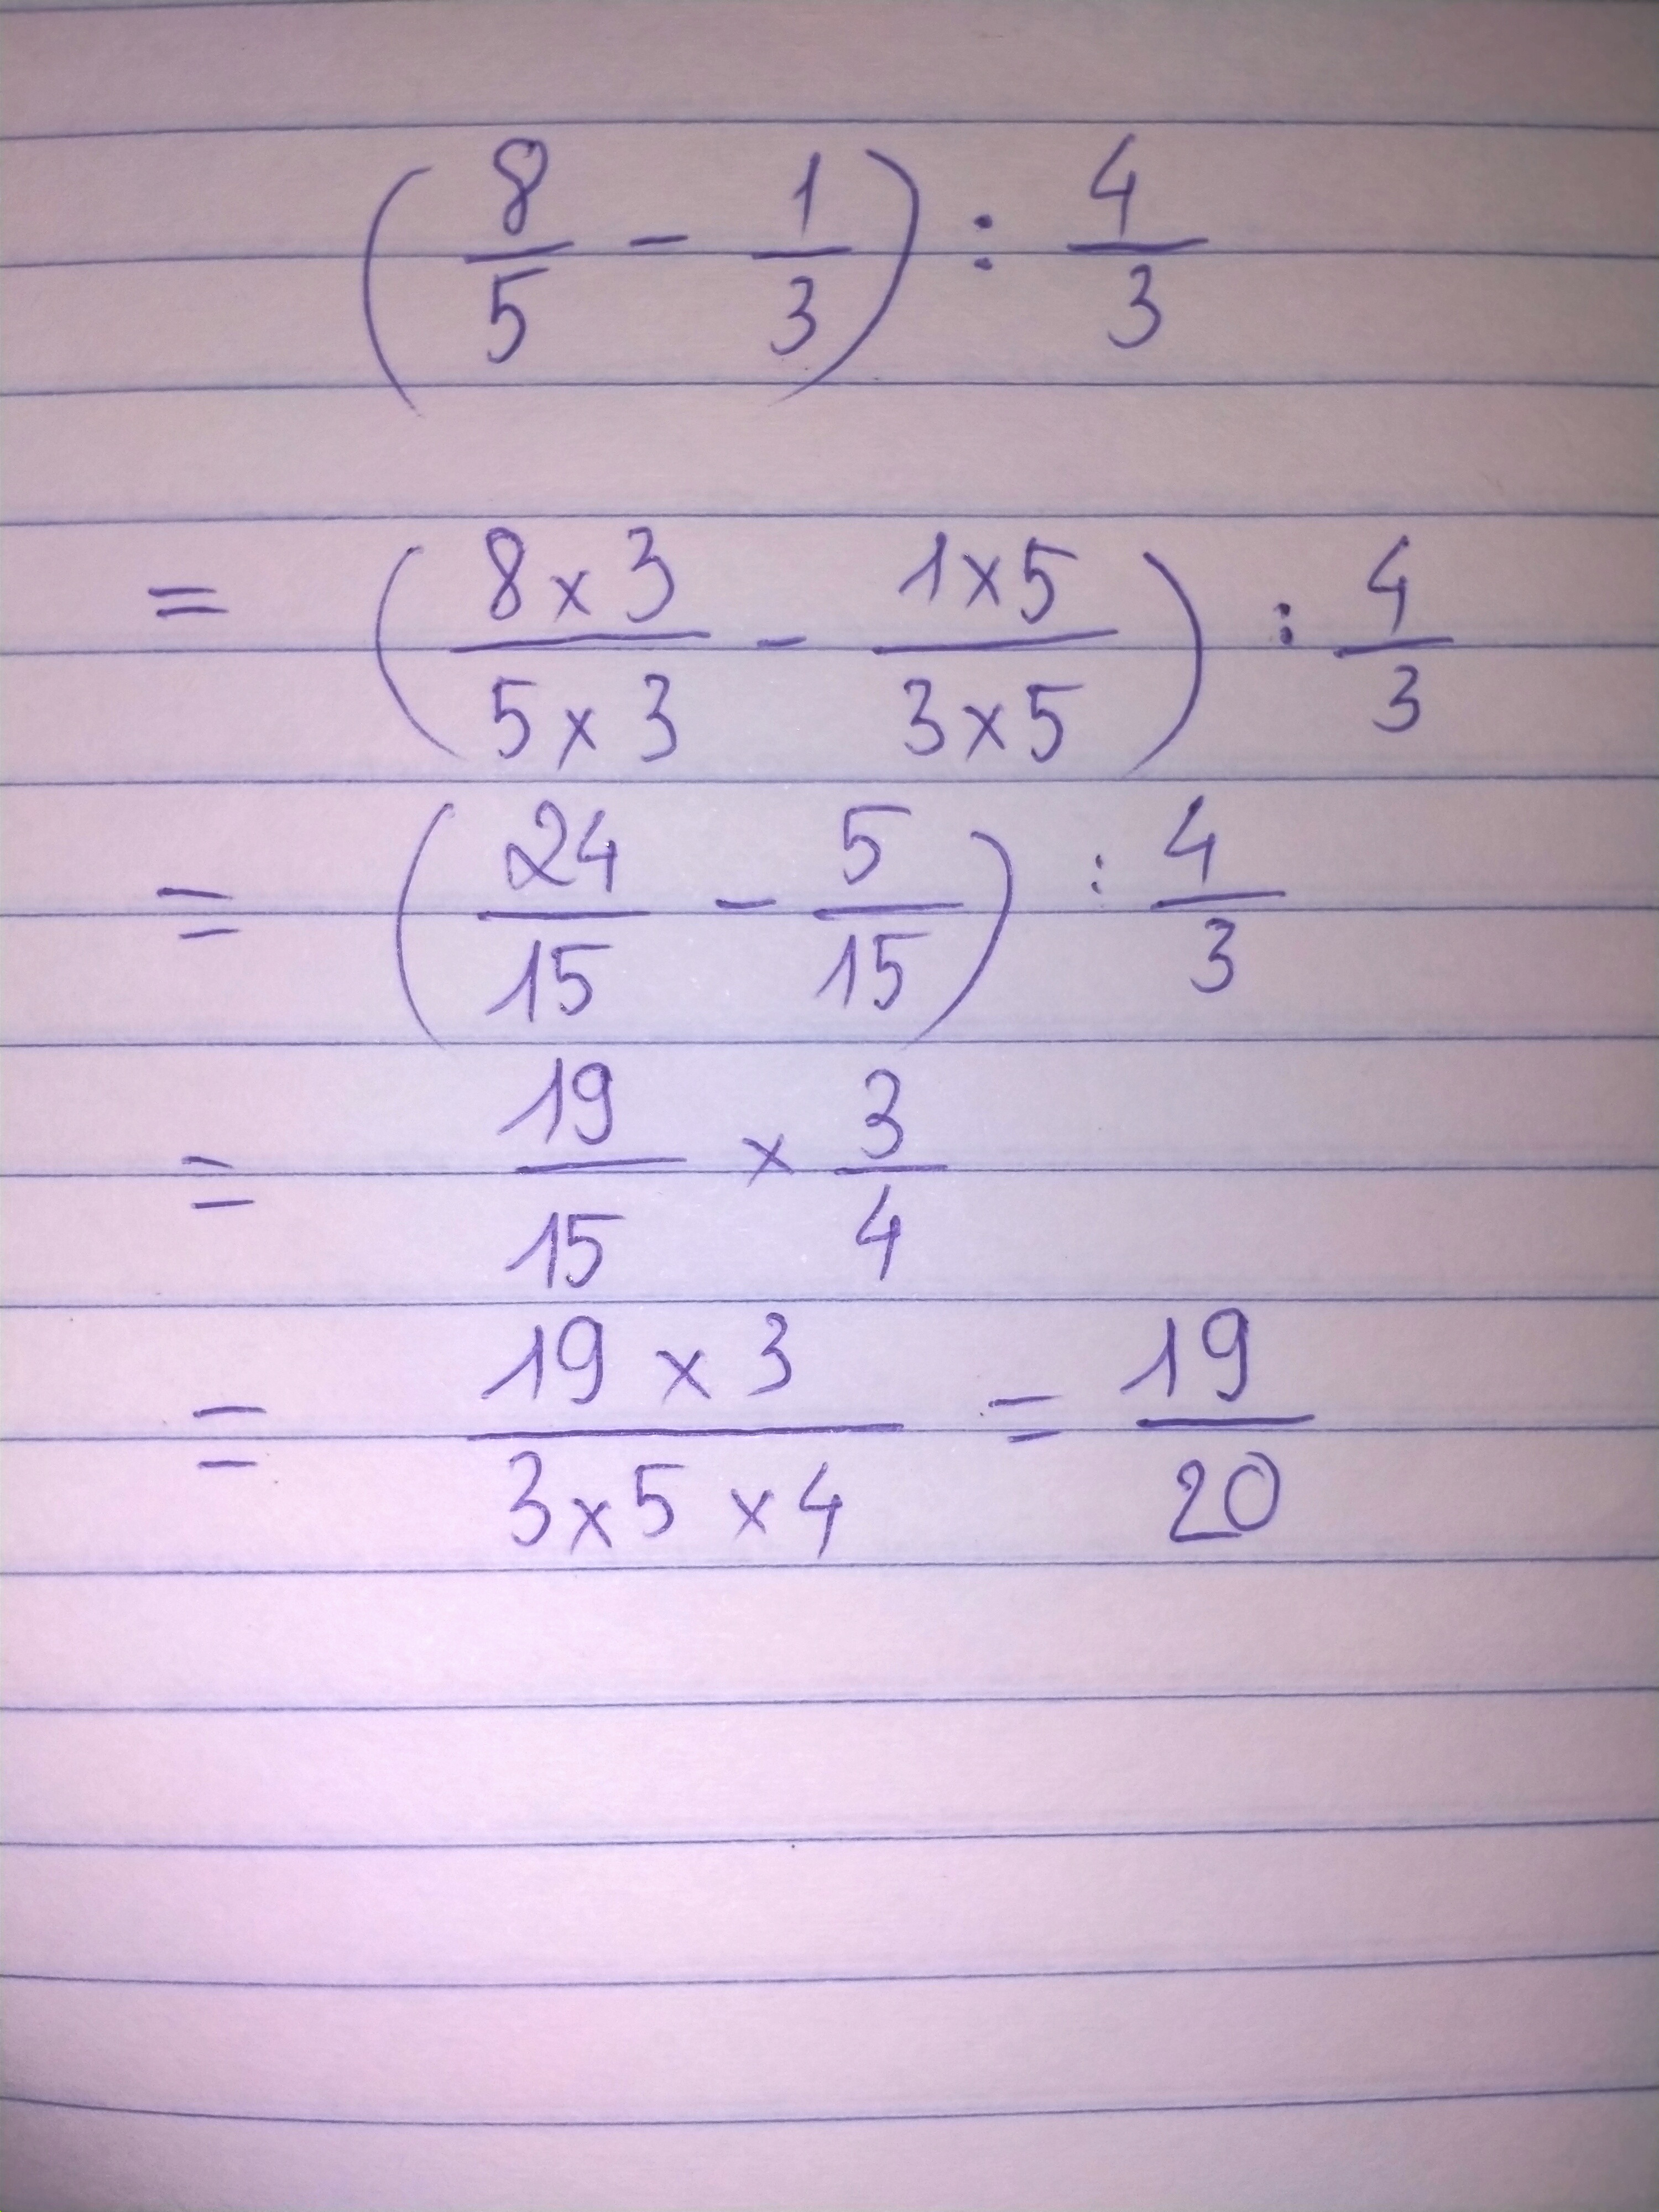 (8/5 - 1/3) : 4/3
= (8x3/5x3 - 1x5/3x5) : 4/3
= (24/15 - 5/15) : 4/3
= 19/15 x 3/4
= 19 x 3/3x5x4 = 19/20